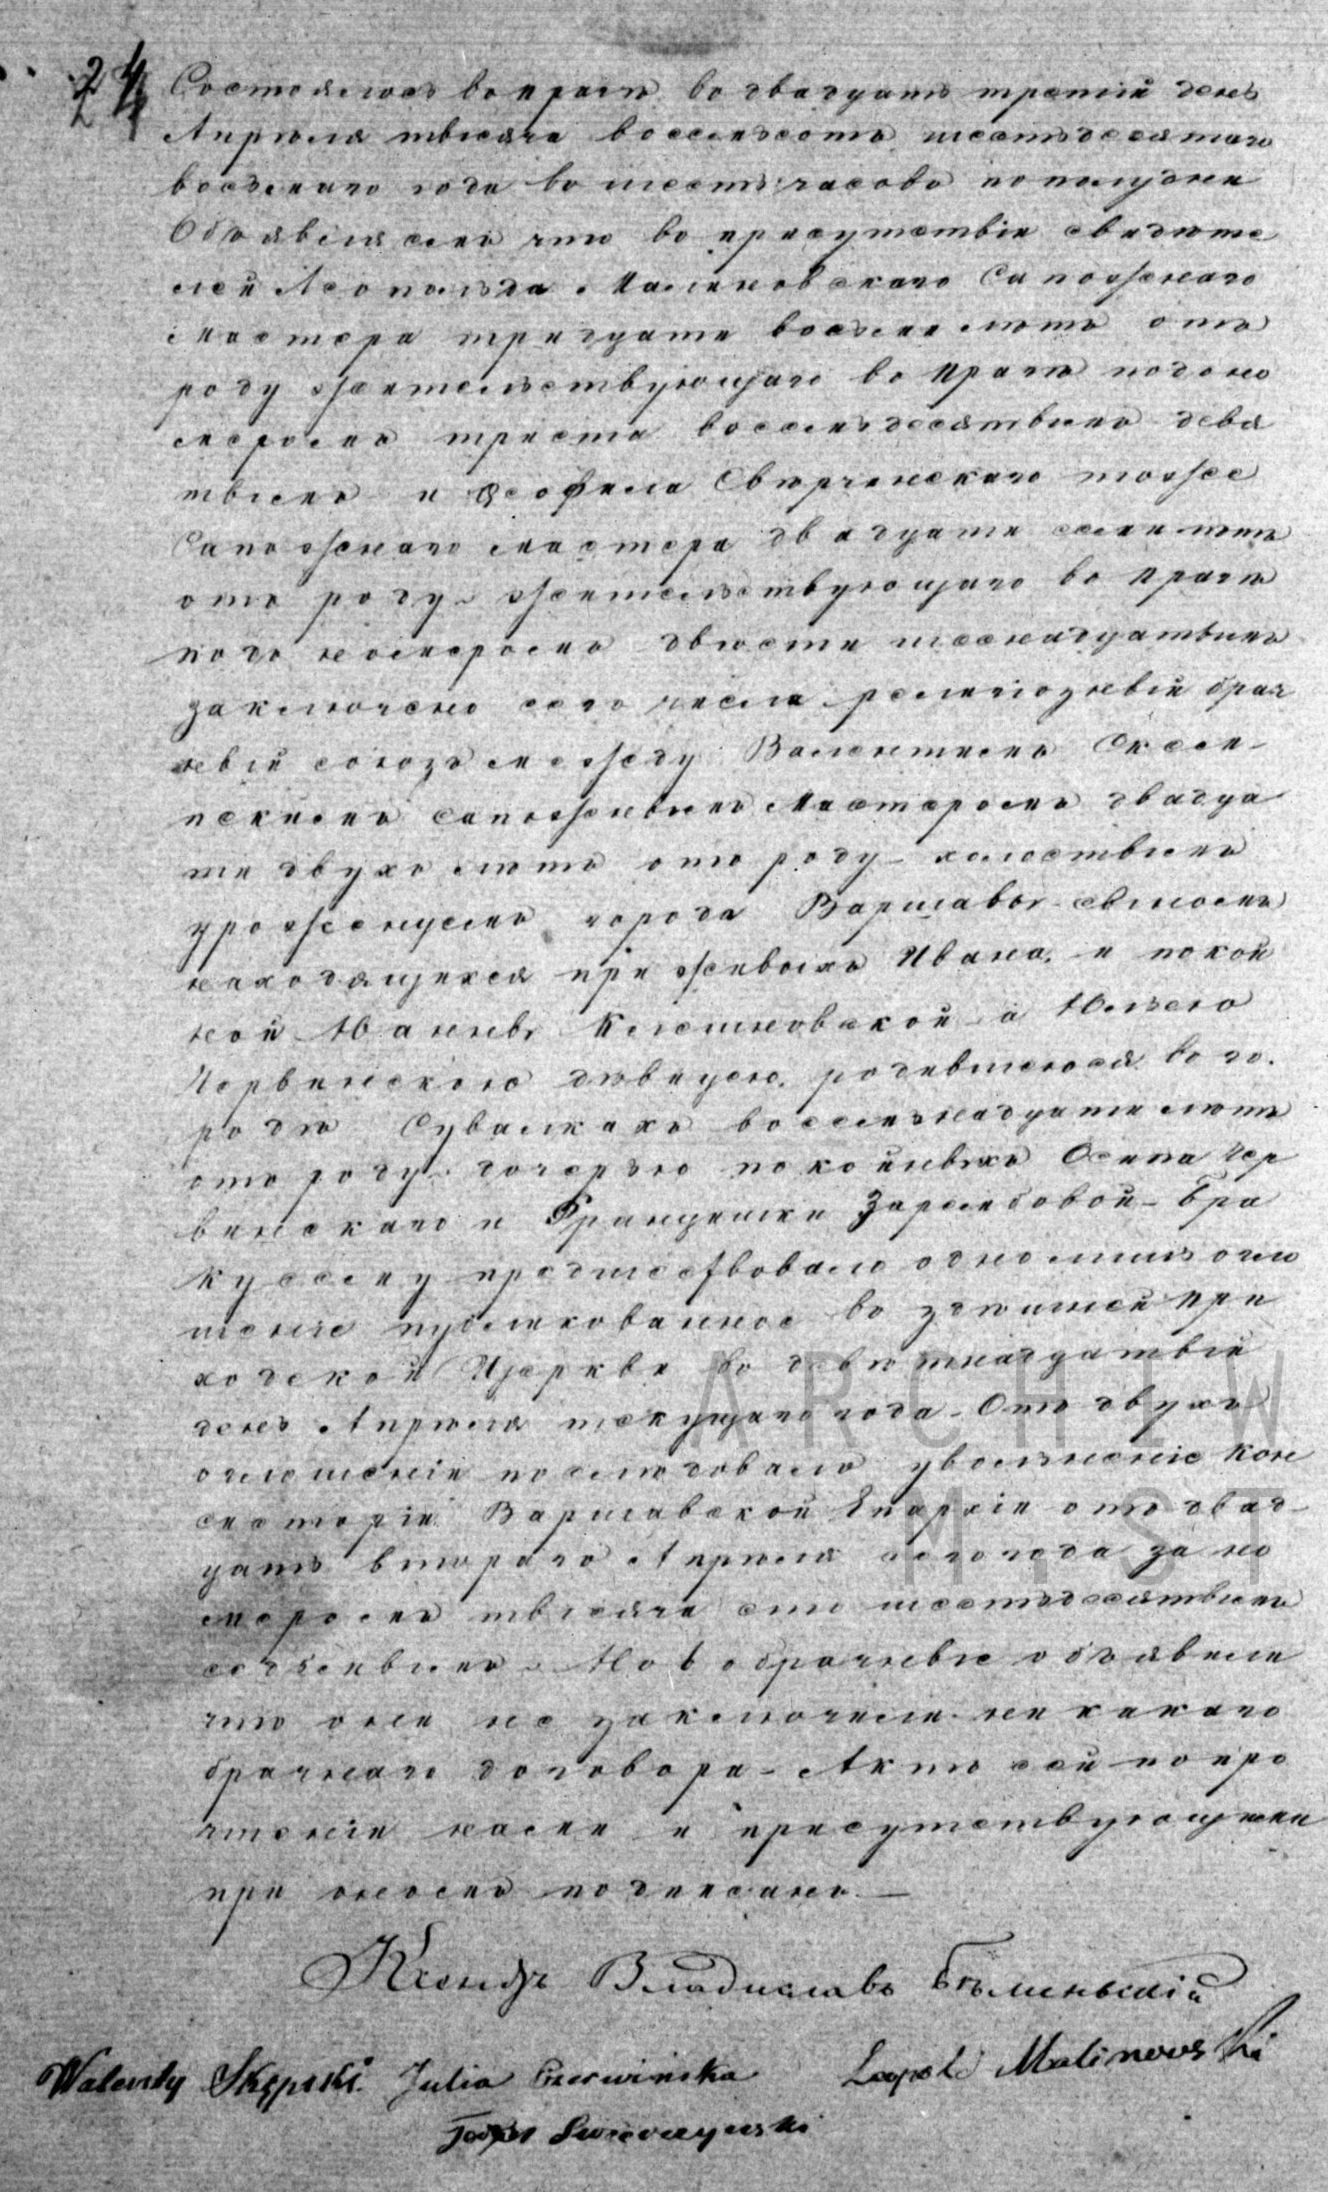 24
Состоялось въ Прагѣ въ двадцать третій день
Апрѣля тысяча восемьсотъ шестьдесятаго
восьмаго года въ шесть часовъ по полудни
Объявляемъ что въ присутствіи свидѣте
лей Леопольда Малиновскаго Сапожнаго
мастера тридцати восьми лѣтъ отъ
роду жительствующаго въ Прагѣ подъ но
меромъ триста восемьдесятымъ девя
тымъ и Ѳеофила Свѣрчинскаго тоже
Сапожнаго мастера двадцати семи лѣтъ
отъ роду жительствующаго въ Прагѣ
подъ номеромъ двѣсти шеснадцатымъ
заключенъ сего числа религіозный брач
ный союзъ между Валентиемъ Скем-
пскимъ сапожнымъ Мастеромъ двадца
ти двухъ лѣтъ отъ роду холостымъ
урожденцемъ города Варшавы сыномъ
находящихся при живыхъ Ивана и покой
ной Юанны Клешновской а Юльею
Червинскою дѣвицею родившеюся въ го.
родѣ Сувалкахъ восемьнадцати лѣтъ
отъ роду дочерью покойныхъ Осипа Чер
винскаго и Францишки Зарембовой - Бра
ку сему предшествовало одно лишь огла
шеніе публикованное въ здѣшней При
ходской Церкви въ девятнадцатый
день Апрѣля текущаго года - Отъ двухъ
оглашеній послѣдовало увольненіе Кон
систоріи Варшавской Епархіи отъ двад-
цать втораго Апрѣля сего года за но
меромъ тысяча сто шестьдесятымъ
седьмымъ - Новобрачные объявили
что они не заключили никакаго
брачнаго договора - Актъ сей по про
чтеніи нами и присутствующими
при ономъ подписанъ. —
Ксендзъ Владиславъ Бѣлиньскій
Walenty Skępski. Julia Czerwinska Leopold Malinowski
Teofil Swierczynski
ARCHIW
M. ST